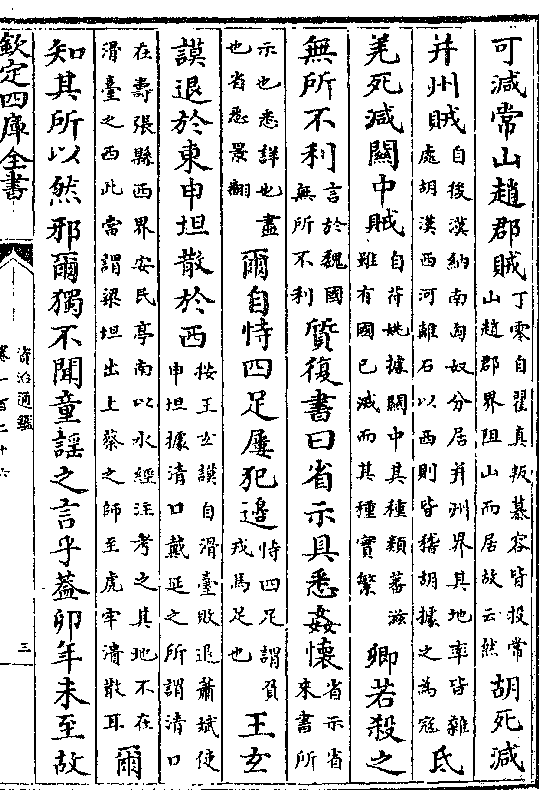 可減常山趙郡賊丁零自翟真叛慕容皆投常山趙郡界阻山而居故云然胡死減
并州賊自後漢納南匈奴分居并州界其地率皆雜處胡漢西河離石以西則皆稽胡據之為寇氐
羌死減關中賊自苻姚據關中其種類蕃滋雖有國已滅而其種實繁卿若殺之
無所不利言於魏國無所不利質復書曰省示具悉姦懷省示省來書所
示也悉詳也盡也省悉景翻爾自恃四足屢犯邊恃四足謂負戎馬足也王玄
謨退於東申坦散於西按王玄謨自滑臺敗退蕭斌使申坦據清口戴延之所謂清口
在壽張縣西界安民亭南以水經注考之其地不在滑臺之西此當謂梁坦出上蔡之師至虎牢潰散耳爾
知其所以然邪爾獨不聞童謠之言乎蓋卯年未至故
欽定四庫全書
資治通鑑
卷一百二十六
三